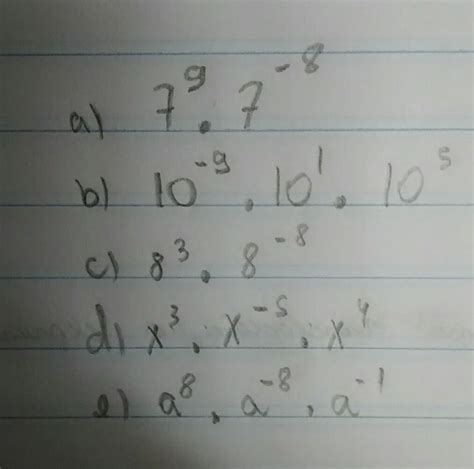 a) 7⁹ . 7⁻⁸
b) 10⁻⁹ . 10¹ . 10⁵
c) 8³ . 8⁻⁸
d) x³ . x⁻⁵ . x⁴
e) a⁸ . a⁻⁸ . a⁻¹